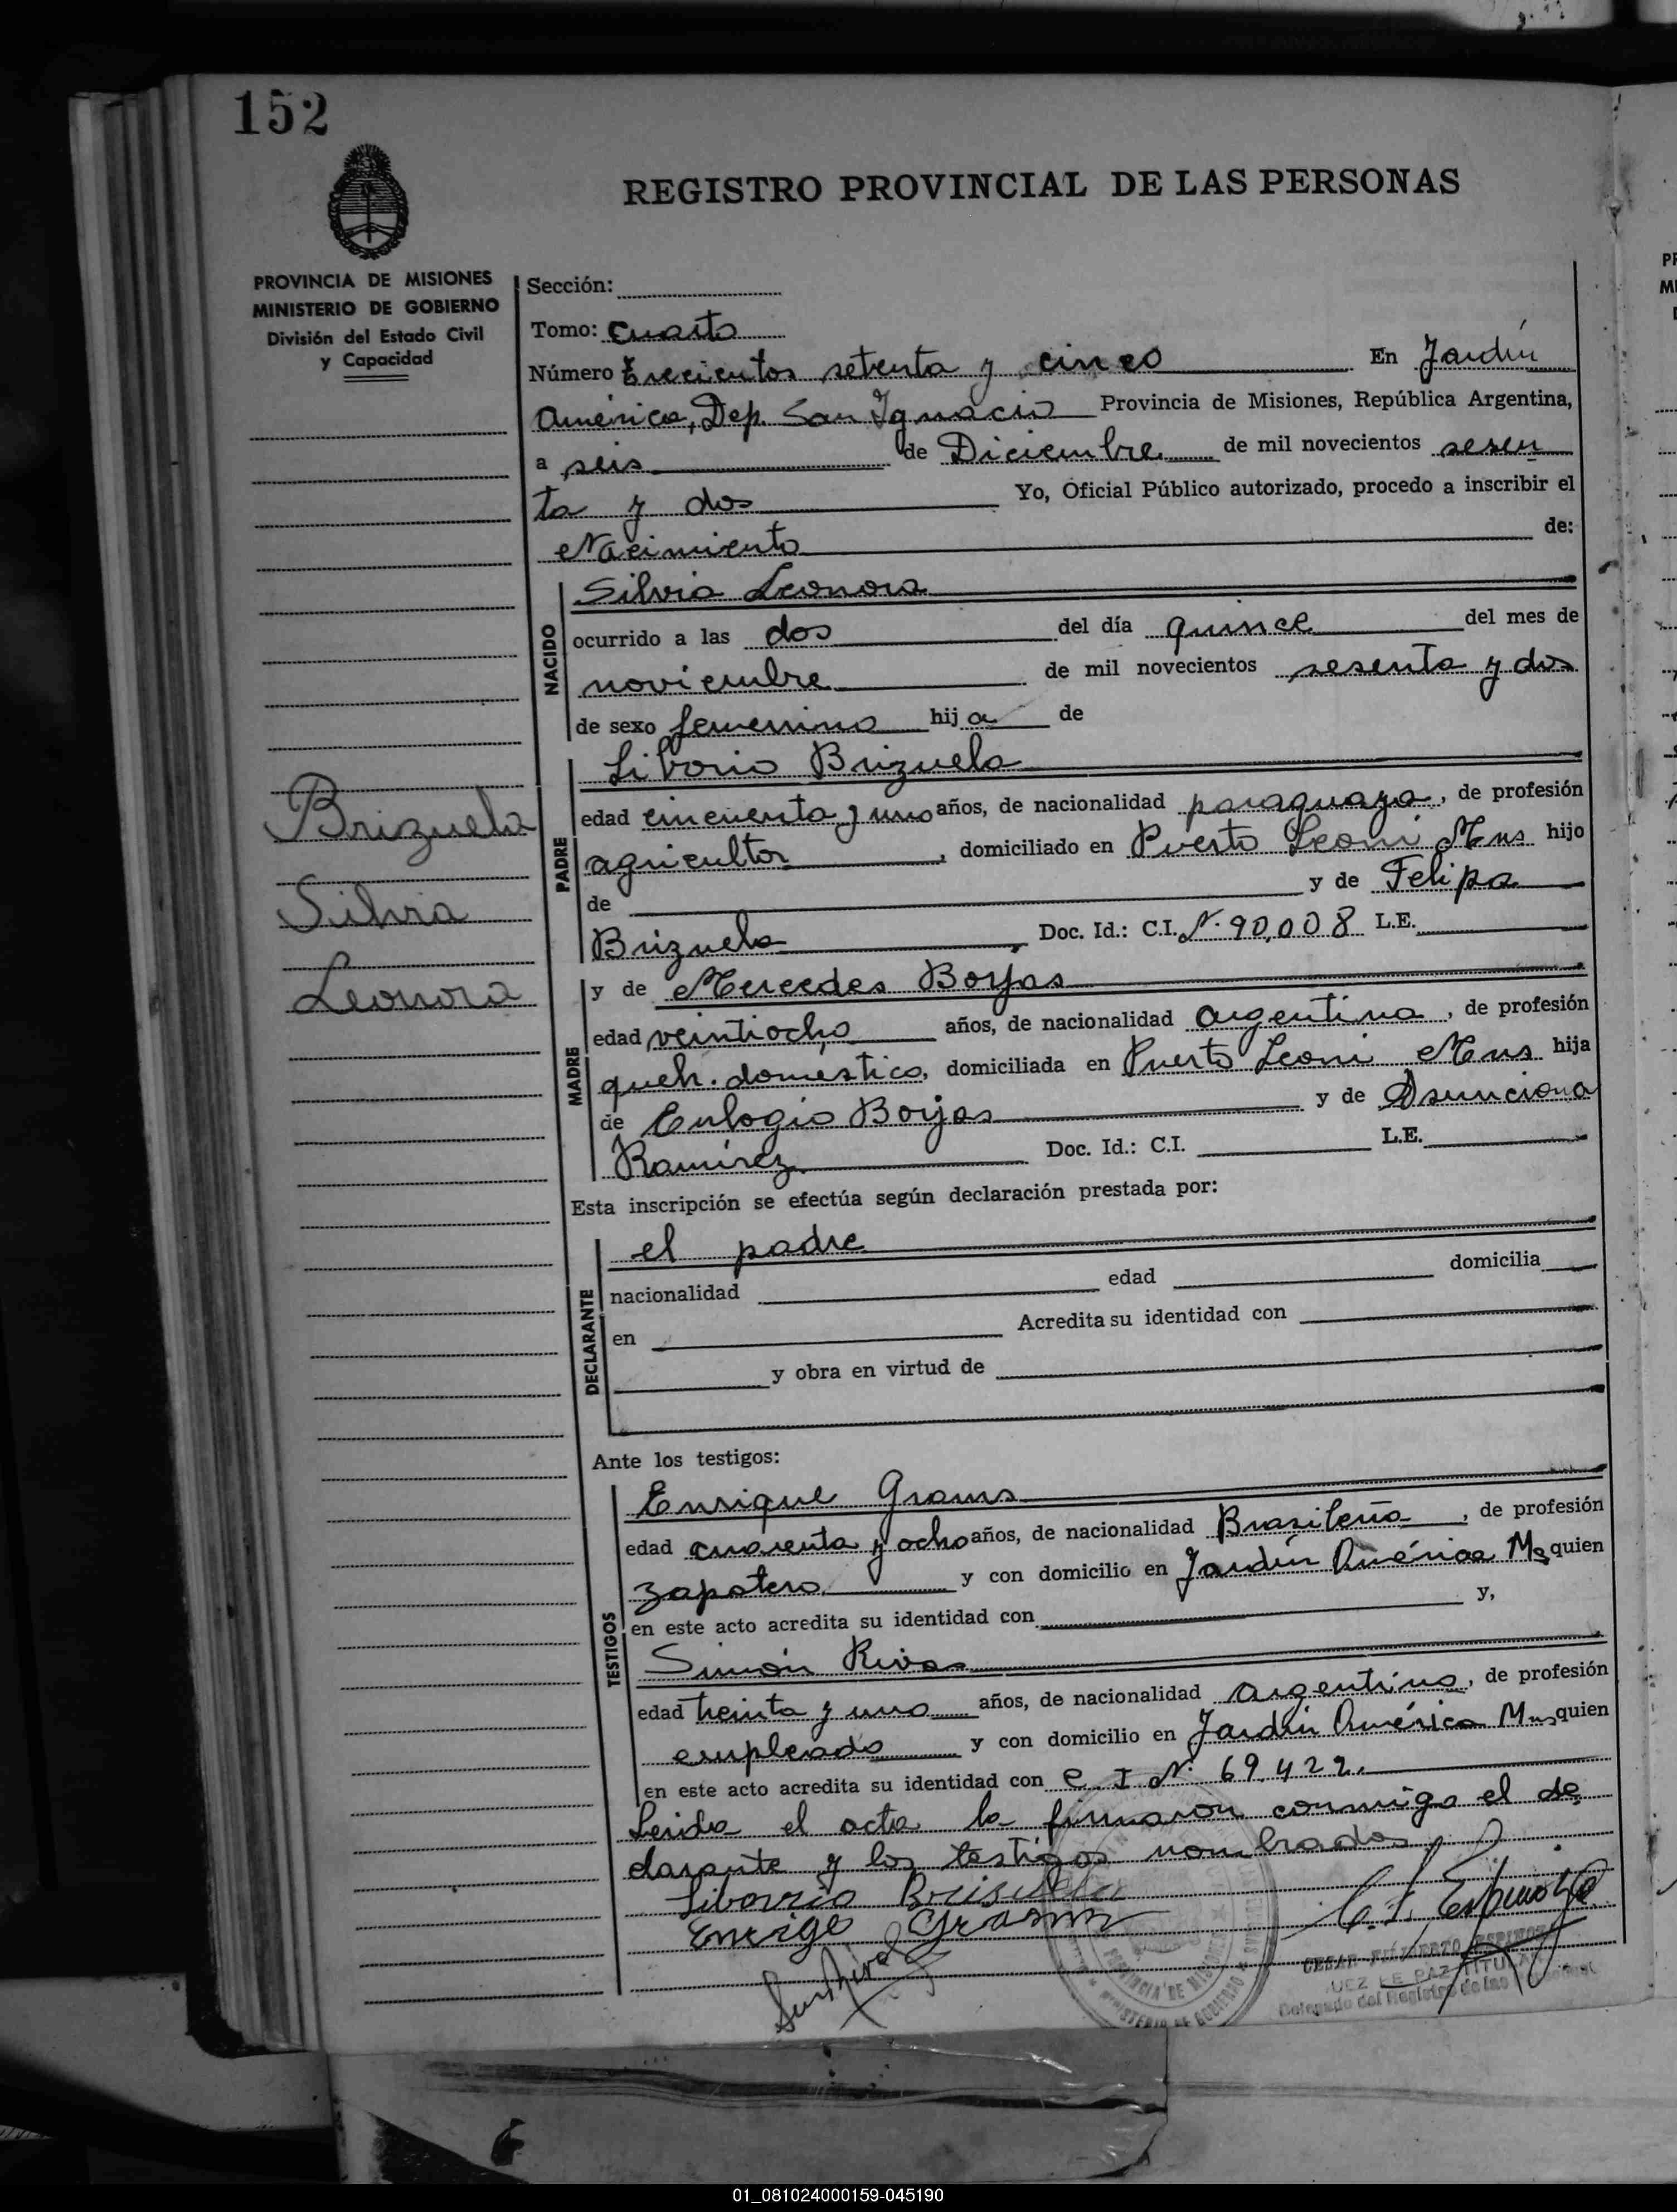 152
REGISTRO PROVINCIAL DE LAS PERSONAS
PROVINCIA DE MISIONES
MINISTERIO DE GOBIERNO
División del Estado Civil
y Capacidad
Sección:
Tomo: cuarto
Número trecientos setenta y cinco En Jardín
América, Dep. San Ignacio Provincia de Misiones, República Argentina,
a seis de Diciembre de mil novecientos sesen
ta y dos Yo, Oficial Público autorizado, procedo a inscribir el
Nacimiento de:
NACIDO
Silvia Leonora
ocurrido a las dos del día quince del mes de
noviembre de mil novecientos sesenta y dos
de sexo femenino hija de
PADRE
Liborio Brizuela
edad cincuenta y uno años, de nacionalidad paraguaya, de profesión
agricultor, domiciliado en Puerto Leoni Mns hijo
de y de Felipa
Brizuela Doc. Id.: C.I. N. 90,008 L.E.
Brizuela
Silvia
Leonora
MADRE
y de Mercedes Borjas
edad veintiocho años, de nacionalidad argentina, de profesión
queh. domestico, domiciliada en Puerto Leoni Mns hija
de Eulogio Borjas y de Asunciona
Ramírez Doc. Id.: C.I. L.E.
Esta inscripción se efectúa según declaración prestada por:
DECLARANTE
el padre
nacionalidad edad domicilia
en Acredita su identidad con
y obra en virtud de
Ante los testigos:
TESTIGOS
Enrique Grams
edad cuarenta y ocho años, de nacionalidad Brasileña, de profesión
zapatero y con domicilio en Jardín América Ms quien
en este acto acredita su identidad con y,
Simón Rivas
edad treinta y uno años, de nacionalidad argentino, de profesión
empleado y con domicilio en Jardín América Mns quien
en este acto acredita su identidad con C. I. N. 69.422.
Leida el acta la firmaron conmigo el de
clarante y los testigos nombrados
Liborrio Brisuela
Enrige Grasmm
C. F. Espinoza
CESAR FILIBERTO ESPINOZA
JUEZ DE PAZ TITULAR
Delegado del Registro de las
PROVINCIA DE MISIONES
MINISTERIO DE GOBIERNO
01_081024000159-045190